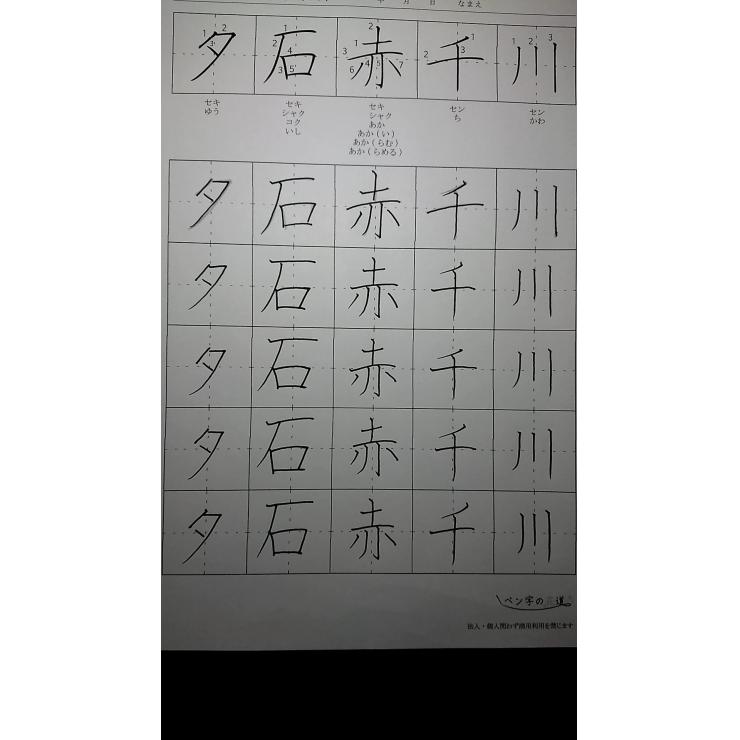 月 日 なまえ
夕 石 赤 千 川
セキ セキ セキ セン セン
ゆう シャク シャク ち かわ
コク あか
いし あか(い)
あか(らむ)
あか(らめる)
夕 石 赤 千 川
夕 石 赤 千 川
夕 石 赤 千 川
夕 石 赤 千 川
夕 石 赤 千 川
ペン字の道
法人・個人問わず商用利用を禁じます